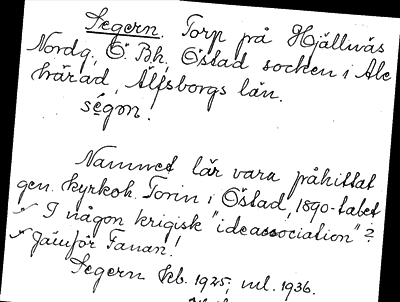 Segern. Torp på Hjällnäs
Nordg., Ö. Bh, Östad socken i Ale
härad, Älfsborgs län.
ségɷn.
Namnet lär vara påhittat
gen. kyrkoh. Torin i Östad, 1890-talet
✓ I någon krigisk "ideassociation"?
✓ Jämför Fanan!
Segern Jeb. 1925; ml. 1936.